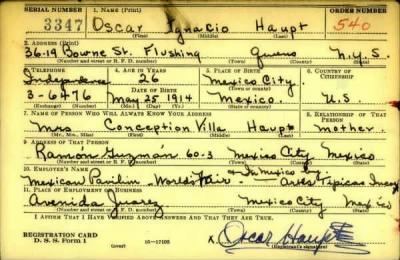 SERIAL NUMBER 1. NAME (Print) ORDER NUMBER
3347 Oscar Ignacio Haupt 540
(First) (Middle) (Last)
2. ADDRESS (Print)
36-19 Bowne St. Flushing Queens N.Y.S.
(Number and street or R. F. D. number) (Town) (County) (State)
3. TELEPHONE 4. AGE IN YEARS 5. PLACE OF BIRTH 6. COUNTRY OF CITIZENSHIP
Independence 26 Mexico City
DATE OF BIRTH
3-6476 May 25 1914 Mexico. U.S.
(Exchange) (Number) (Mo.) (Day) (Yr.) (State or country)
7. NAME OF PERSON WHO WILL ALWAYS KNOW YOUR ADDRESS 8. RELATIONSHIP OF THAT PERSON
Mrs Conception Villa Haupt mother.
(Mr., Mrs., Miss) (First) (Middle) (Last)
9. ADDRESS OF THAT PERSON
Ramon Guzmán 60-3 Mexico City Mexico
(Number and street or R. F. D. number) (Town) (County) (State)
10. EMPLOYER'S NAME
Mexican Pavilion - World's Fair In Mexico Artes Tipicas
11. PLACE OF EMPLOYMENT OR BUSINESS
Avenida Juarez Mexico City Mexico
(Number and street or R. F. D. number) (Town) (County) (State)
I AFFIRM THAT I HAVE VERIFIED ABOVE ANSWERS AND THAT THEY ARE TRUE.
REGISTRATION CARD
D. S. S. Form 1 (over) 16-17105 X Oscar Haupt
(Registrant's signature)